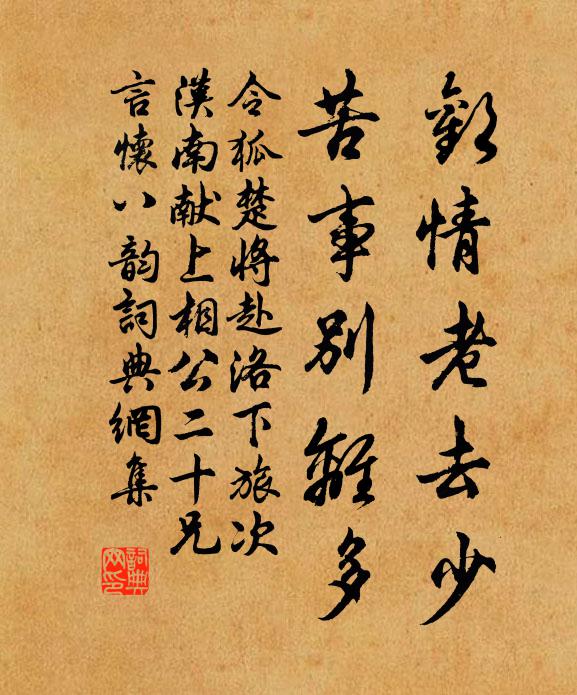 歡情老去少
苦事别離多
令狐楚將赴洛下旅次
漢南献上相公二十兄
言懷八韵詞典網集
詞典网印